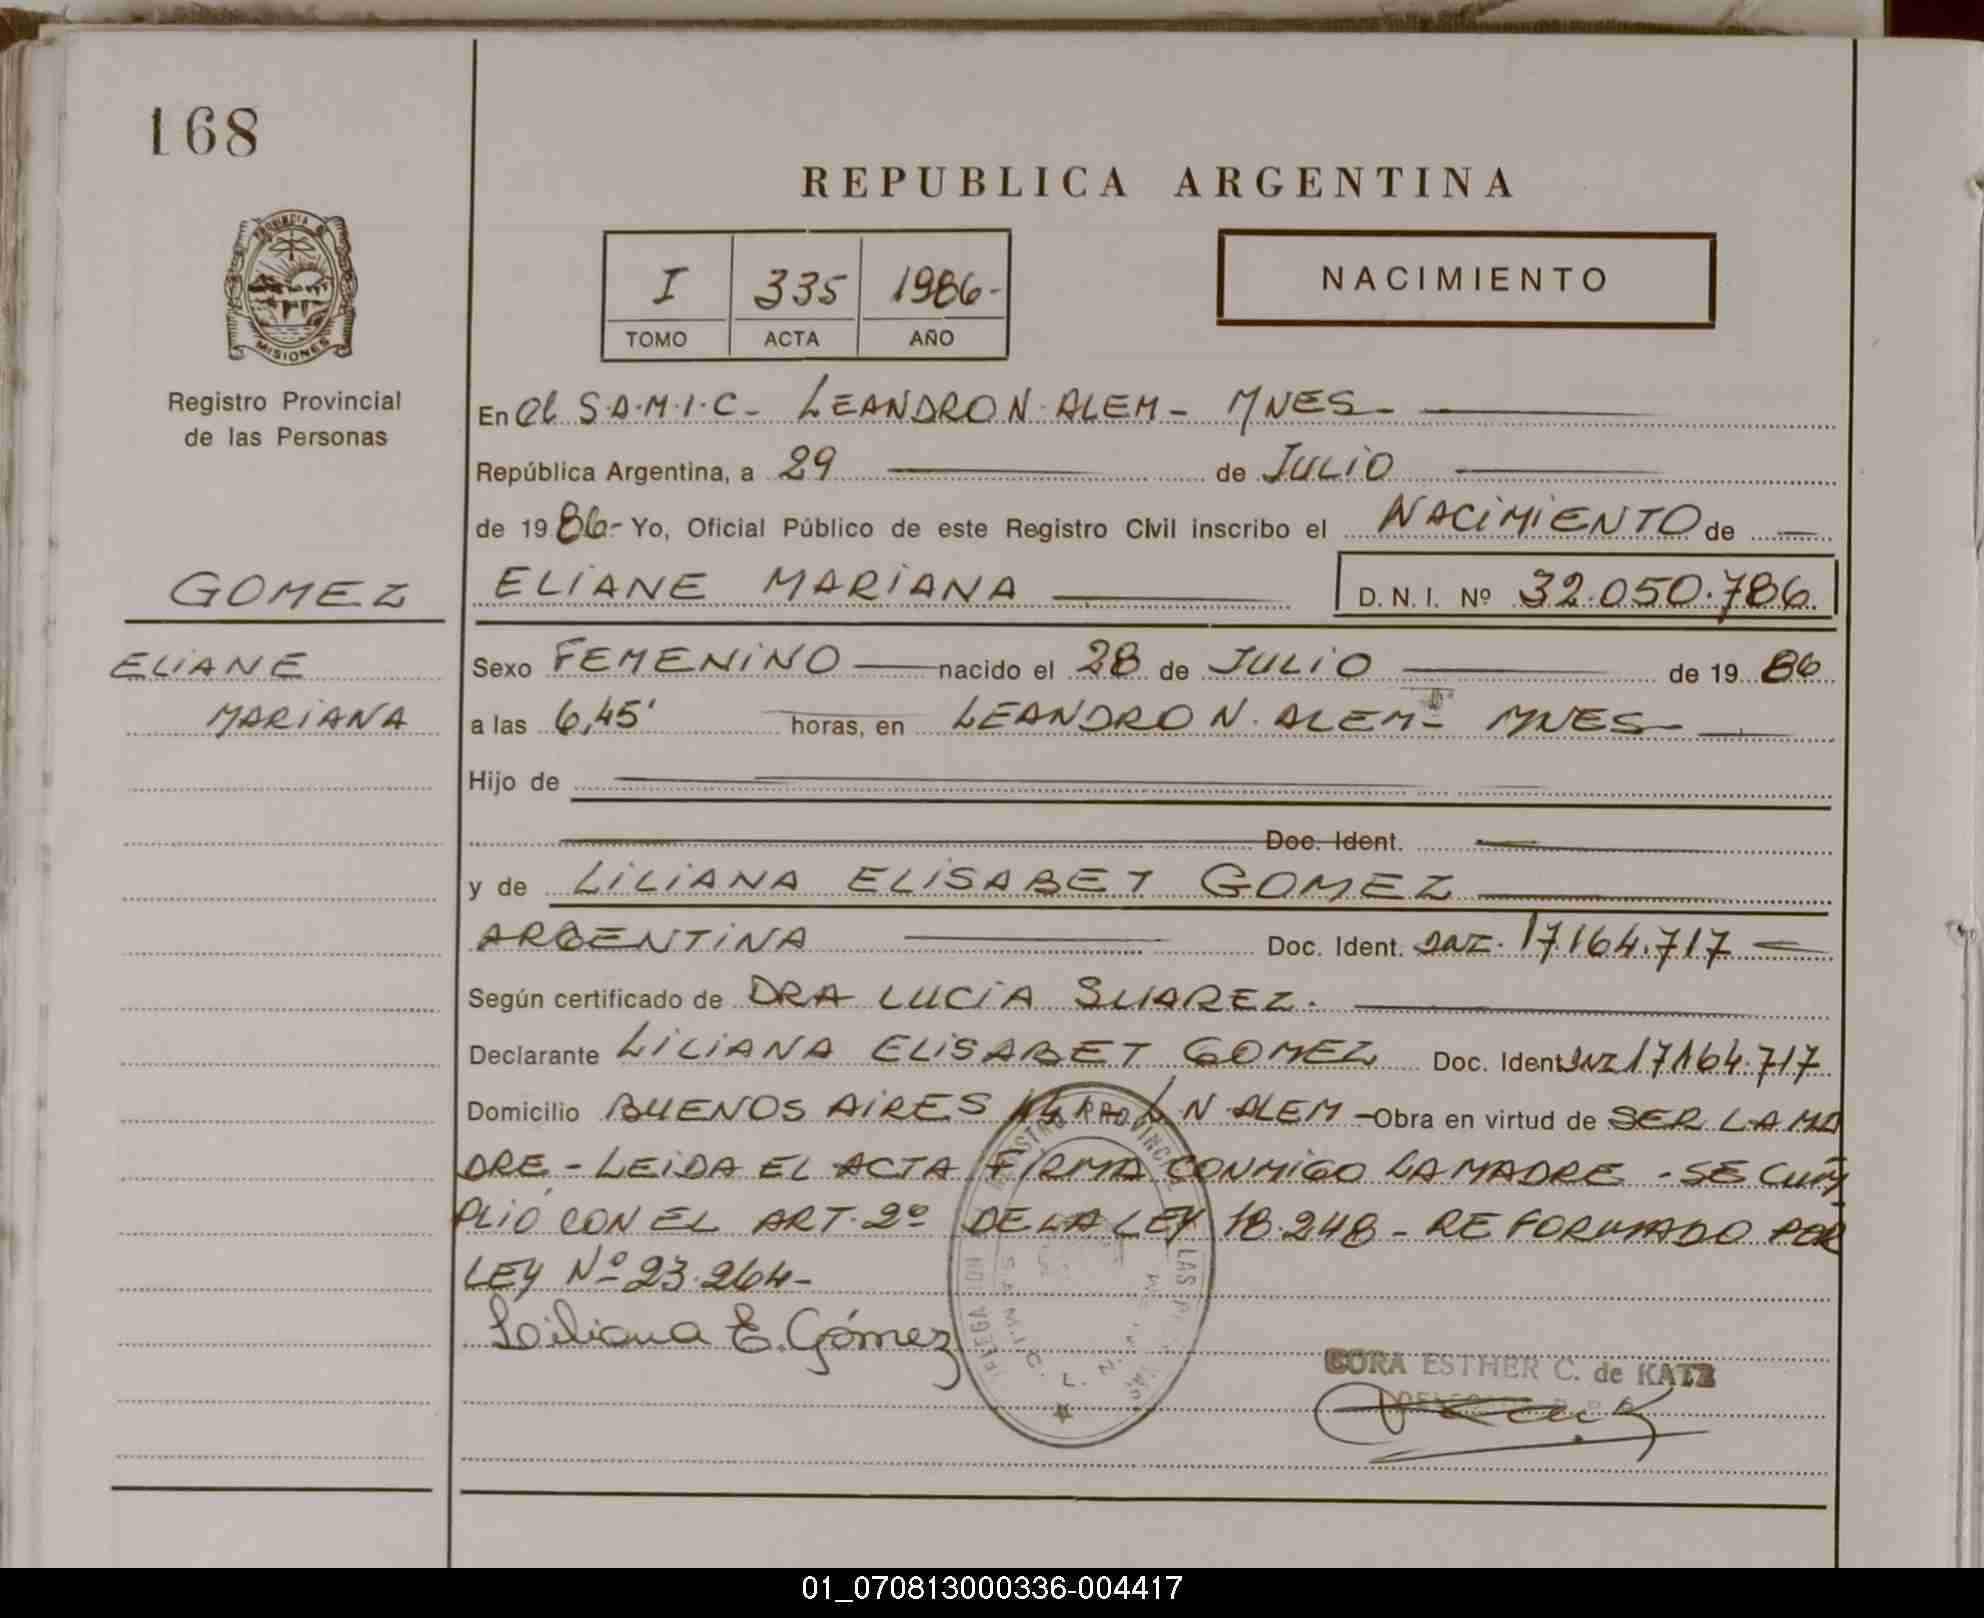 168
REPUBLICA ARGENTINA
I 335 1986-
TOMO ACTA AÑO
NACIMIENTO
PROVINCIA DE
MISIONES
Registro Provincial
de las Personas
GOMEZ
ELIANE
MARIANA
En el S.A.M.I.C- LEANDRO N. ALEM- MNES-
República Argentina, a 29 de JULIO
de 1986- Yo, Oficial Público de este Registro Civil inscribo el NACIMIENTO de
ELIANE MARIANA D. N. I. Nº 32.050.786
Sexo FEMENINO nacido el 28 de JULIO de 1986
a las 6,45' horas, en LEANDRO N. ALEM- MNES-
Hijo de
Doc. Ident.
y de LILIANA ELISABET GOMEZ
ARGENTINA Doc. Ident. DNI. 17.164.717
Según certificado de DRA LUCIA SUAREZ.
Declarante LILIANA ELISABET GOMEZ Doc. Ident. DNI 17164.717
Domicilio BUENOS AIRES L N ALEM - Obra en virtud de SER LA MA
DRE - LEIDA EL ACTA FIRMA CONMIGO LA MADRE - SE CUM
PLIÓ CON EL ART. 2º DE LA LEY 18.248 - REFORMADO POR
LEY Nº 23.264-
Liliana E. Gómez
S.A.M.I.C. L. N.
CORA ESTHER C. de KATZ
01_070813000336-004417